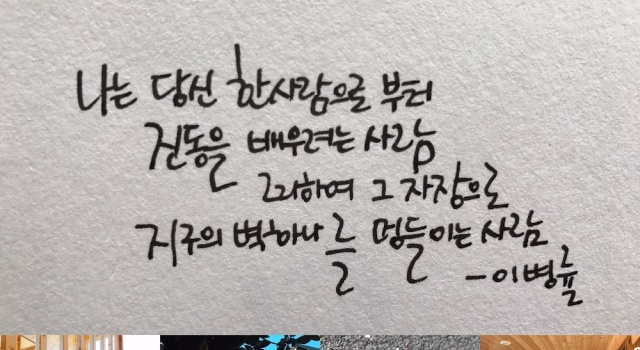 나는 당신 한사람으로 부터
진동을 배우려는 사람
그리하여 그 자장으로
지구의 벽하나를 멍들이는 사람
-이병률